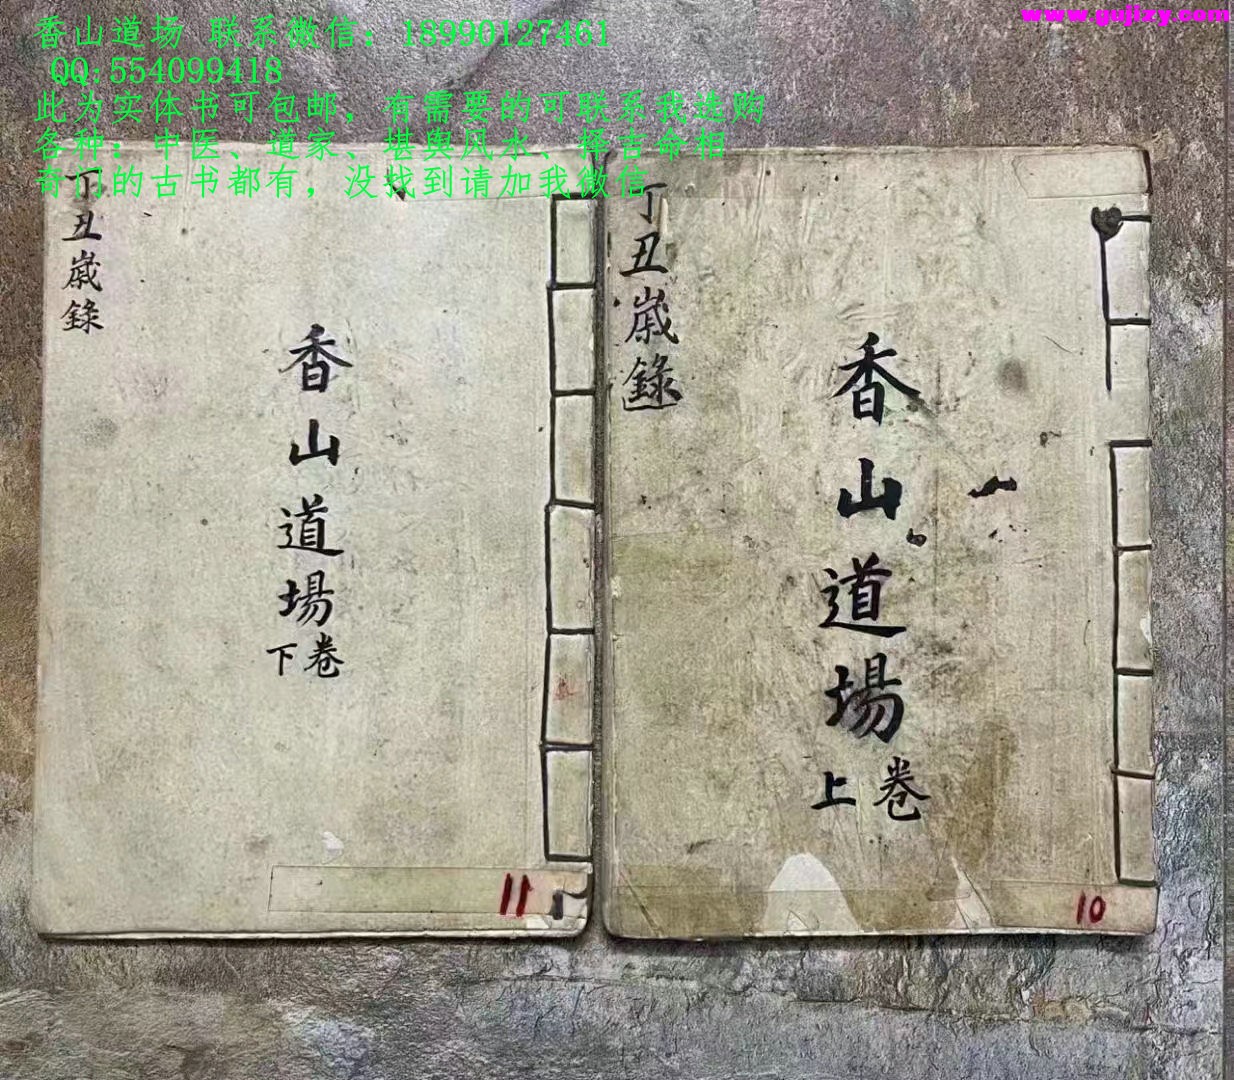 www.gujizy.com
香山道场 联系微信：18990127461
QQ:554099418
此为实体书可包邮，有需要的可联系我选购
各种：中医、道家、堪舆风水、择吉命相
奇门的古书都有，没找到请加我微信
丁丑歲錄
香山道場
上卷
10
丁丑歲錄
香山道場
下卷
11